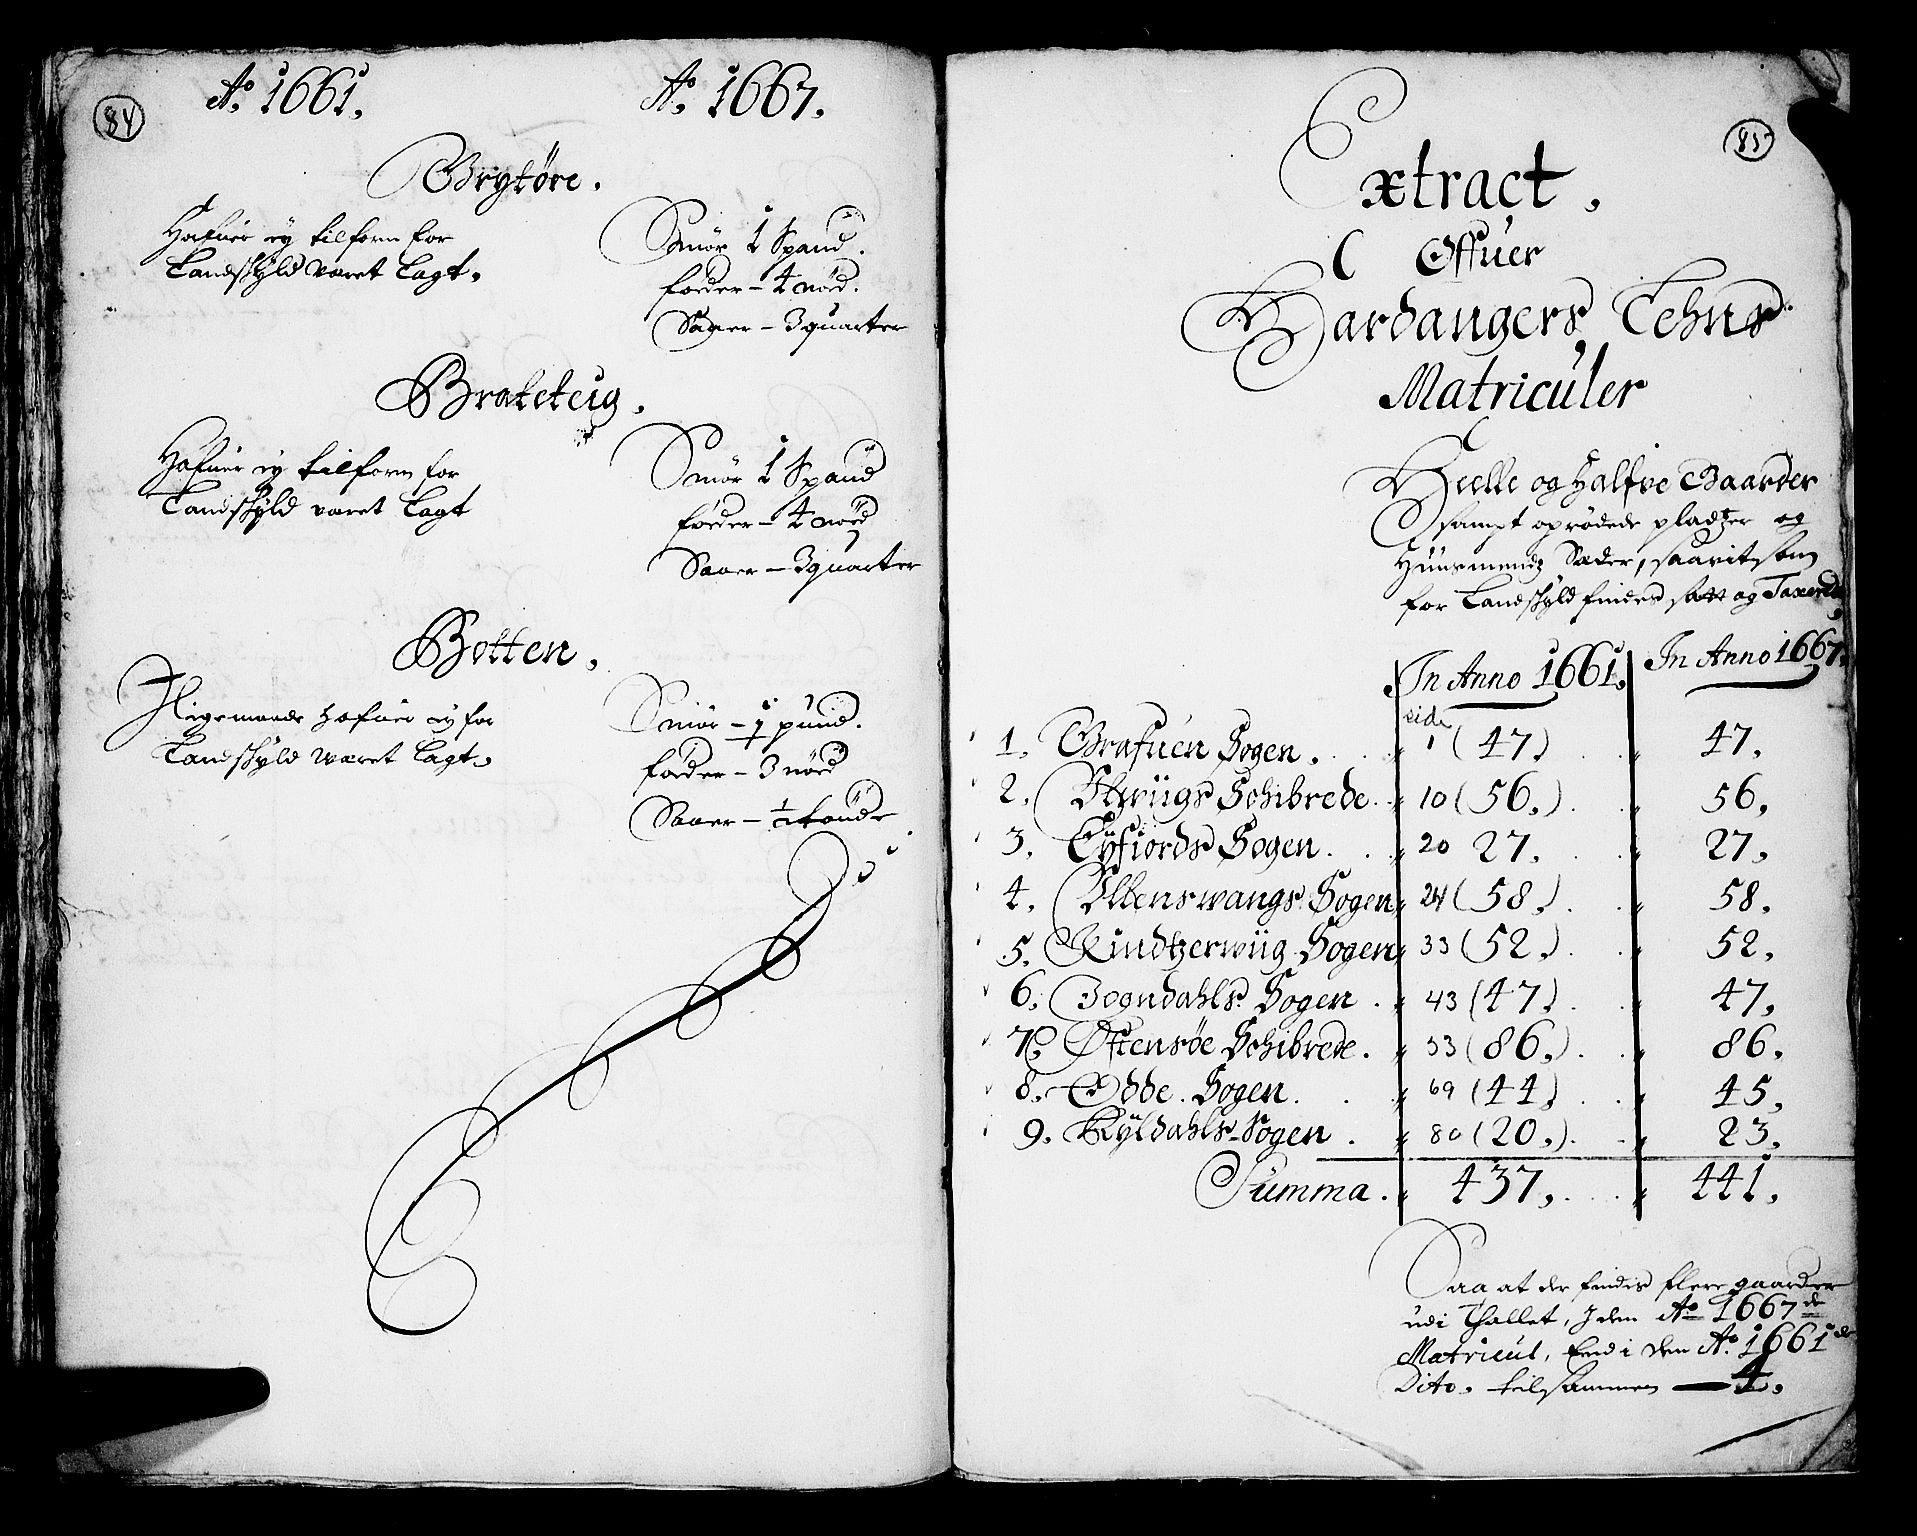 84
Ao 1661. Ao 1667.
Brytöre.
Hafuer ey tilforn for
Landskyld varet Lagt.
Smör 1 Spand.
foeder - 4 nöd.
Saaer - 3 quarter
Brateteig.
Hafuer ey tilforn for
Landskyld varet Lagt
Smör 1 Spand
foeder - 4 nöed
Saaer - 3 quarter
Botten.
Ligemaade Hafuer ey for
Landskyld Waret Lagt.
Smör - 1 pund.
foeder - 3 nöed
Saaer - 1/2 tönde
85
Extract.
Offuer
Hardangers Lehns
Matriculer
Heelle og Halfve Gaarder
sampt oprödede pladtzer og
Huusmendtz Sæder, saavit som
for Landskyld findes satt og Taxerde,
In Anno 1661. In Anno 1667.
side
1. Grafuen Sogen. 1 (47) 47.
2. Schibrede. 10 (56.) 56.
3. Eyfiords Sogen. 20 27. 27.
4. Ullenswangs Sogen 24 (58.) 58.
5. Kindtzerwiig Sogen 33 (52.) 52.
6. Jogndahls Sogen. 43 (47) 47.
7. Östensöe Schibrede. 53 (86.) 86.
8. Odde. Sogen. 69 (44) 45.
9. Röldahls Sogen. 80 (20.) 23.
Summa. 437. 441.
Saa at der findes flere gaarder
udi Thallet, J den Ao 1667de
Matricul, End i den Ao 1661de
Dito. tilsammen — 4.